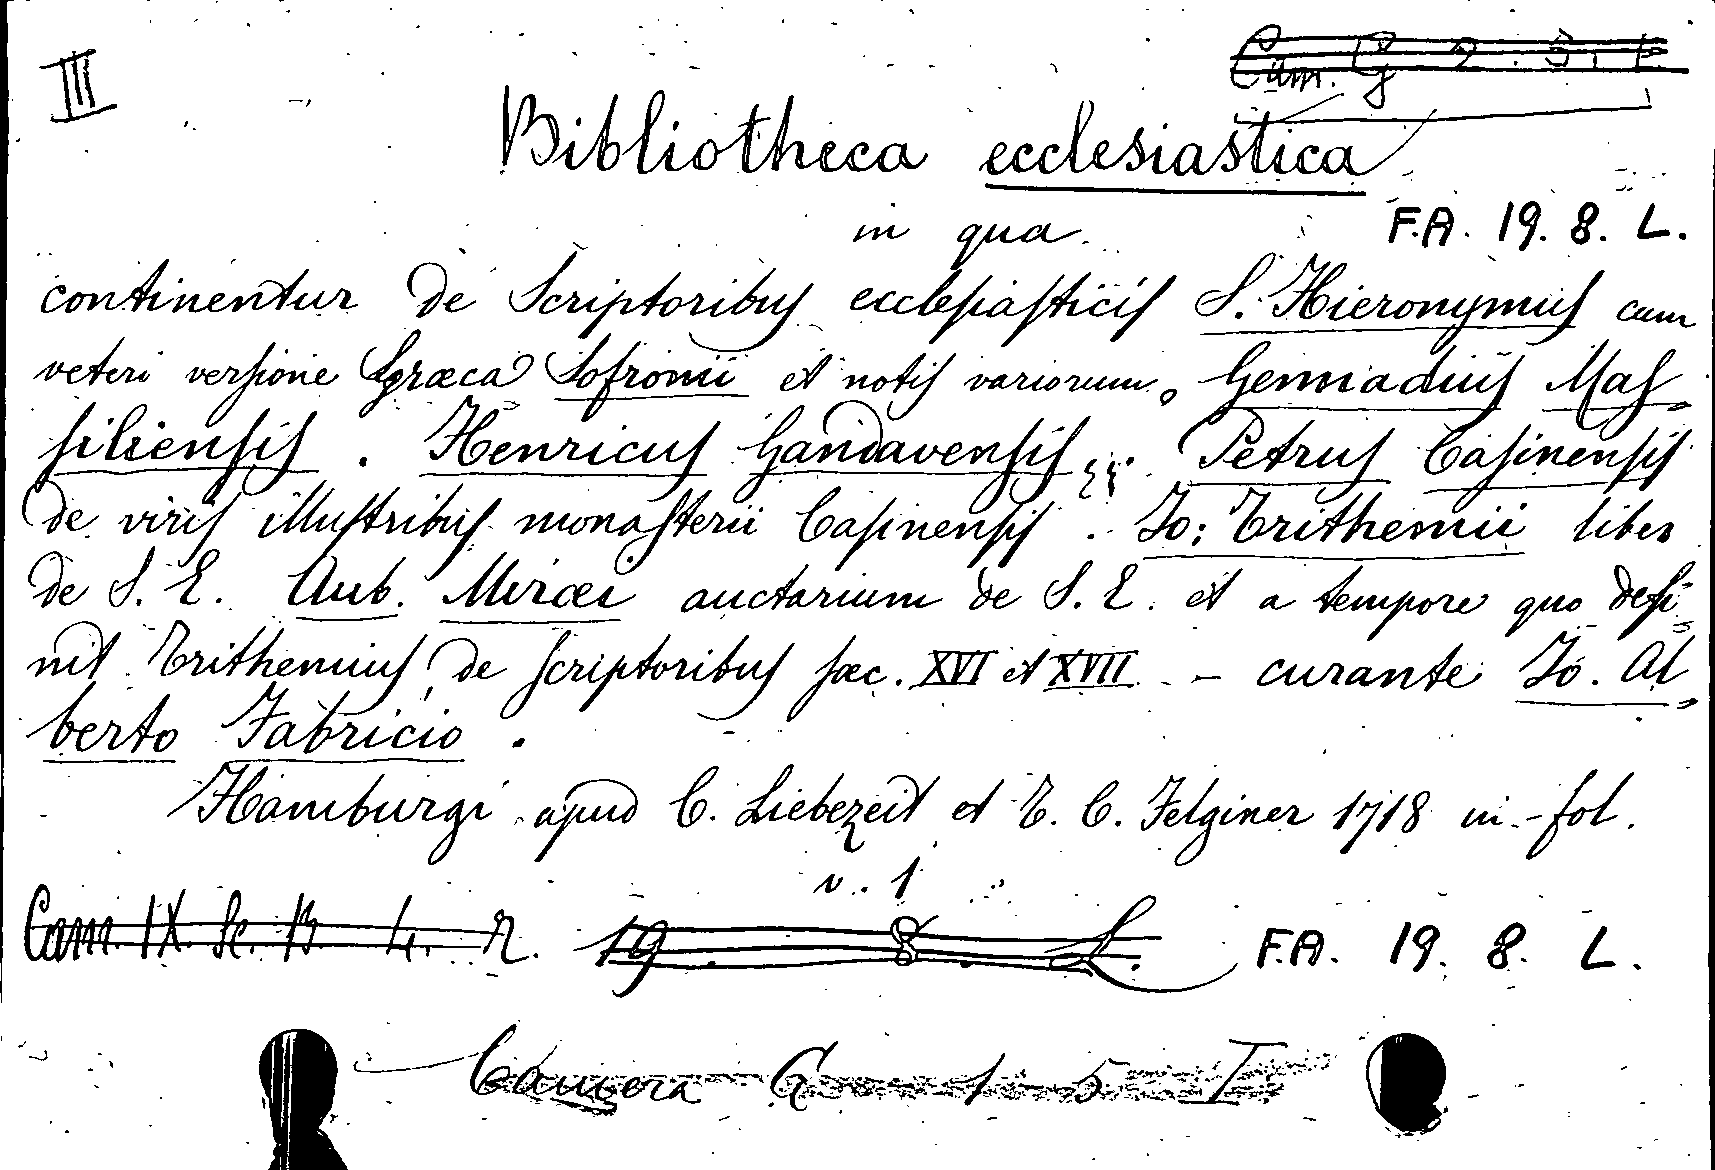 III
Cam. G 2. 3. F.
Bibliotheca ecclesiastica
in qua
F.A. 19. 8. L.
continentur de Scriptoribus ecclesiasticis S. Hieronymus cum
veteri versione græca Sofronii et notis variorum. Gennadius Mas-
siliensis. Henricus Gandavensis. Petrus Casinensis
de viris illustribus monasterii Casinensis. Jo: Trithemii liber
de S. E. Aub. Miræi auctarium de S. E. et a tempore quo desi-
nit Trithemius, de scriptoribus sæc. XVI et XVII - curante Jo. Al-
berto Fabricio.
Hamburgi apud C. Liebezeit et T. C. Felginer 1718 in-fol.
v. 1
Cam. IX. Sc. B. 4. R. 19. 8. L. F.A. 19. 8. L.
Camera G 1 5 I